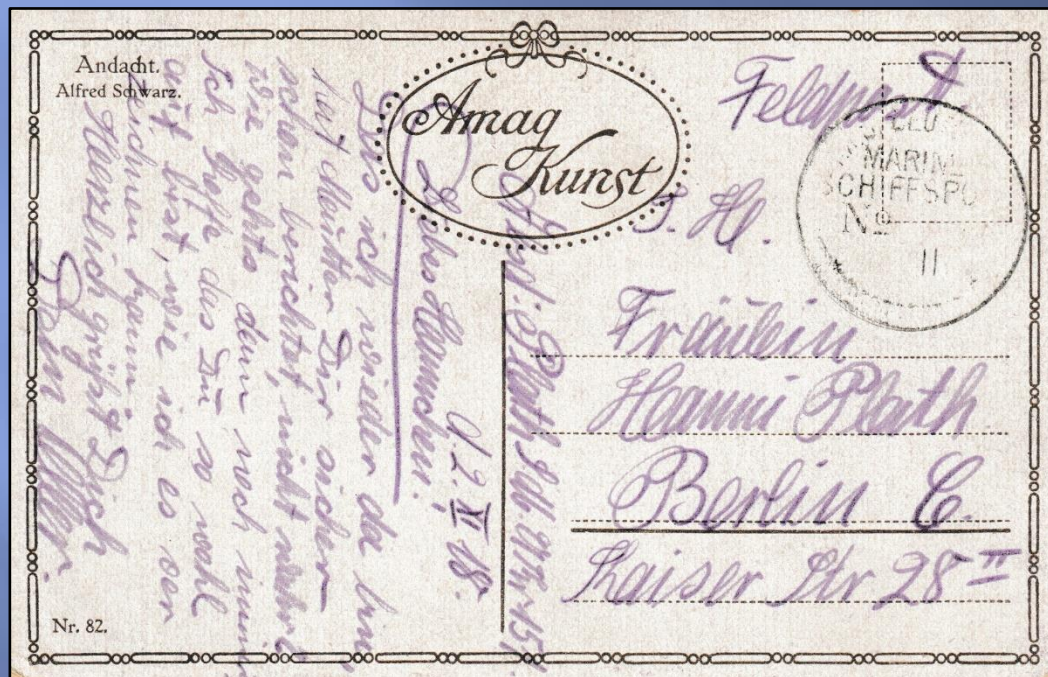 Andacht.
Alfred Schwarz.
Amag
Kunst
Feldpost
MARINE
SCHIFFSPO
No
11
S. H.
Fräulein
Hanni Plath
Berlin C.
Kaiser Str 28 II
d. 2. XI 18.
Liebes Hannchen!
Das ich wieder da bin
hat Mutter Dir sicher
schon berichtet, nicht wahr?
Wie gehts denn noch immer
Ich hoffe das Du so wohl
auf bist, wie ich es von
kann.
Herzlich grüßt Dich
Dein
Abs.: Plath
Nr. 82.